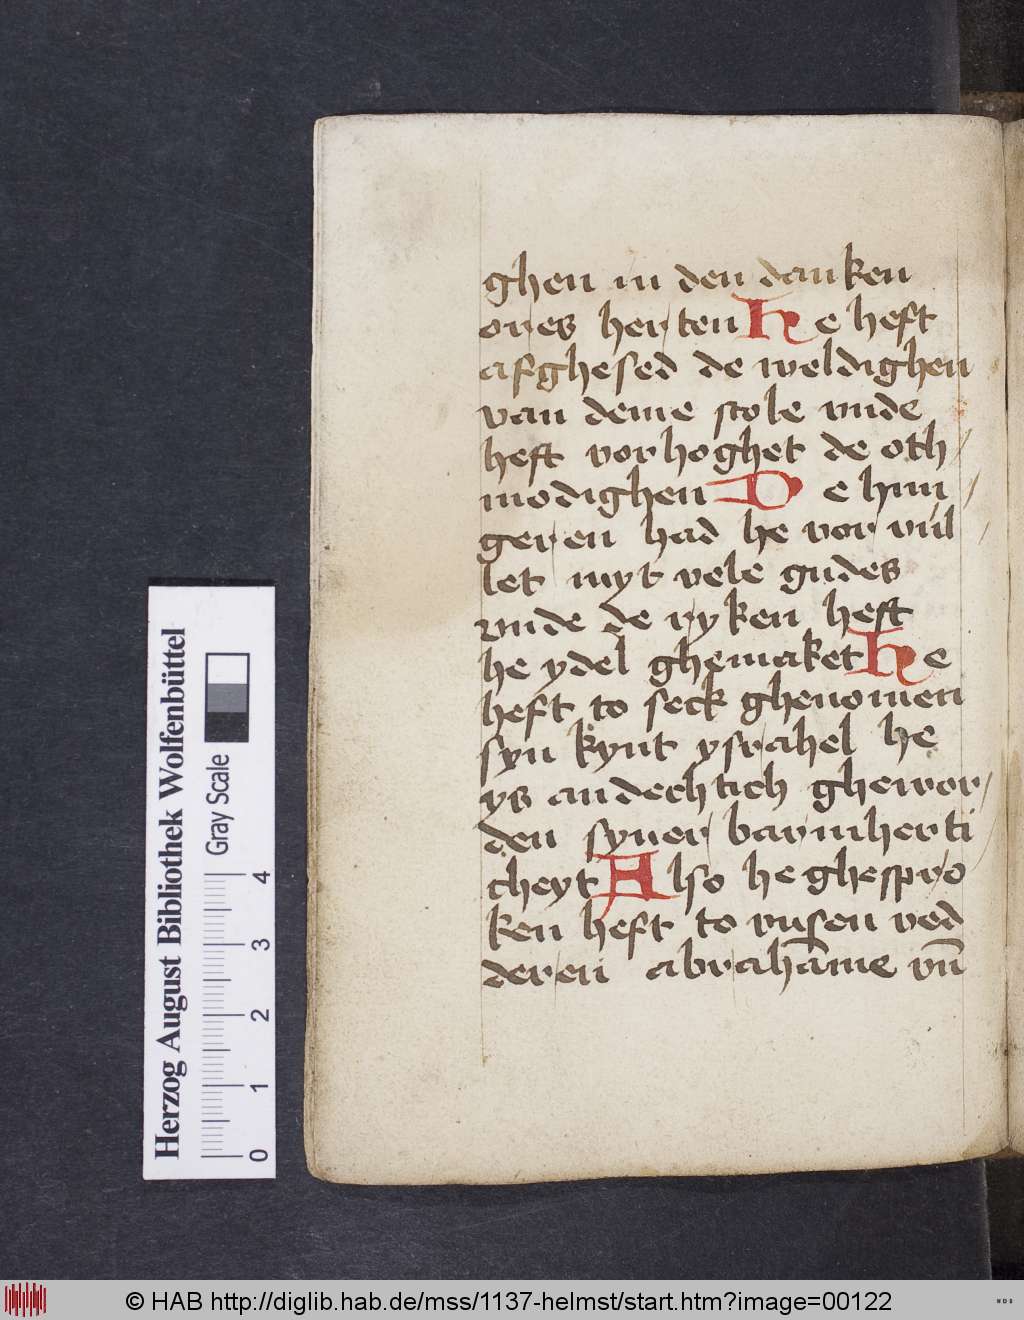 ghen in den danken
ores herten He heft
afghesed de weldighen
van deme stole vnde
heft vorhoghet de oth/
modighen De hun/
geren had he vor vul/
let myt vele gudes
vnde de ryken heft
he ydel ghemaket He
heft to seck ghenomen
syn kynt ysrahel he
ys andechtich ghewor/
den syner barmherti/
cheyt Also he ghespro
ken heft to vnsen ved
deren abrahāme vn̄
Herzog August Bibliothek Wolfenbüttel
Gray Scale
0 1 2 3 4
© HAB http://diglib.hab.de/mss/1137-helmst/start.htm?image=00122